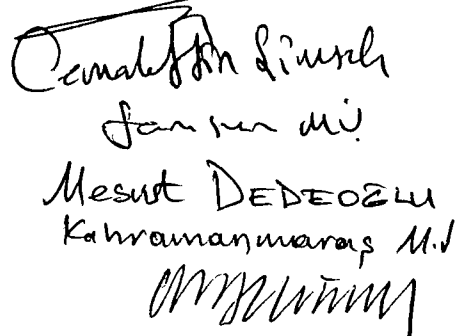 Cemalettin Şimşek
Samsun Mv.
Mesut DEDEOĞLU
Kahramanmaraş M.V